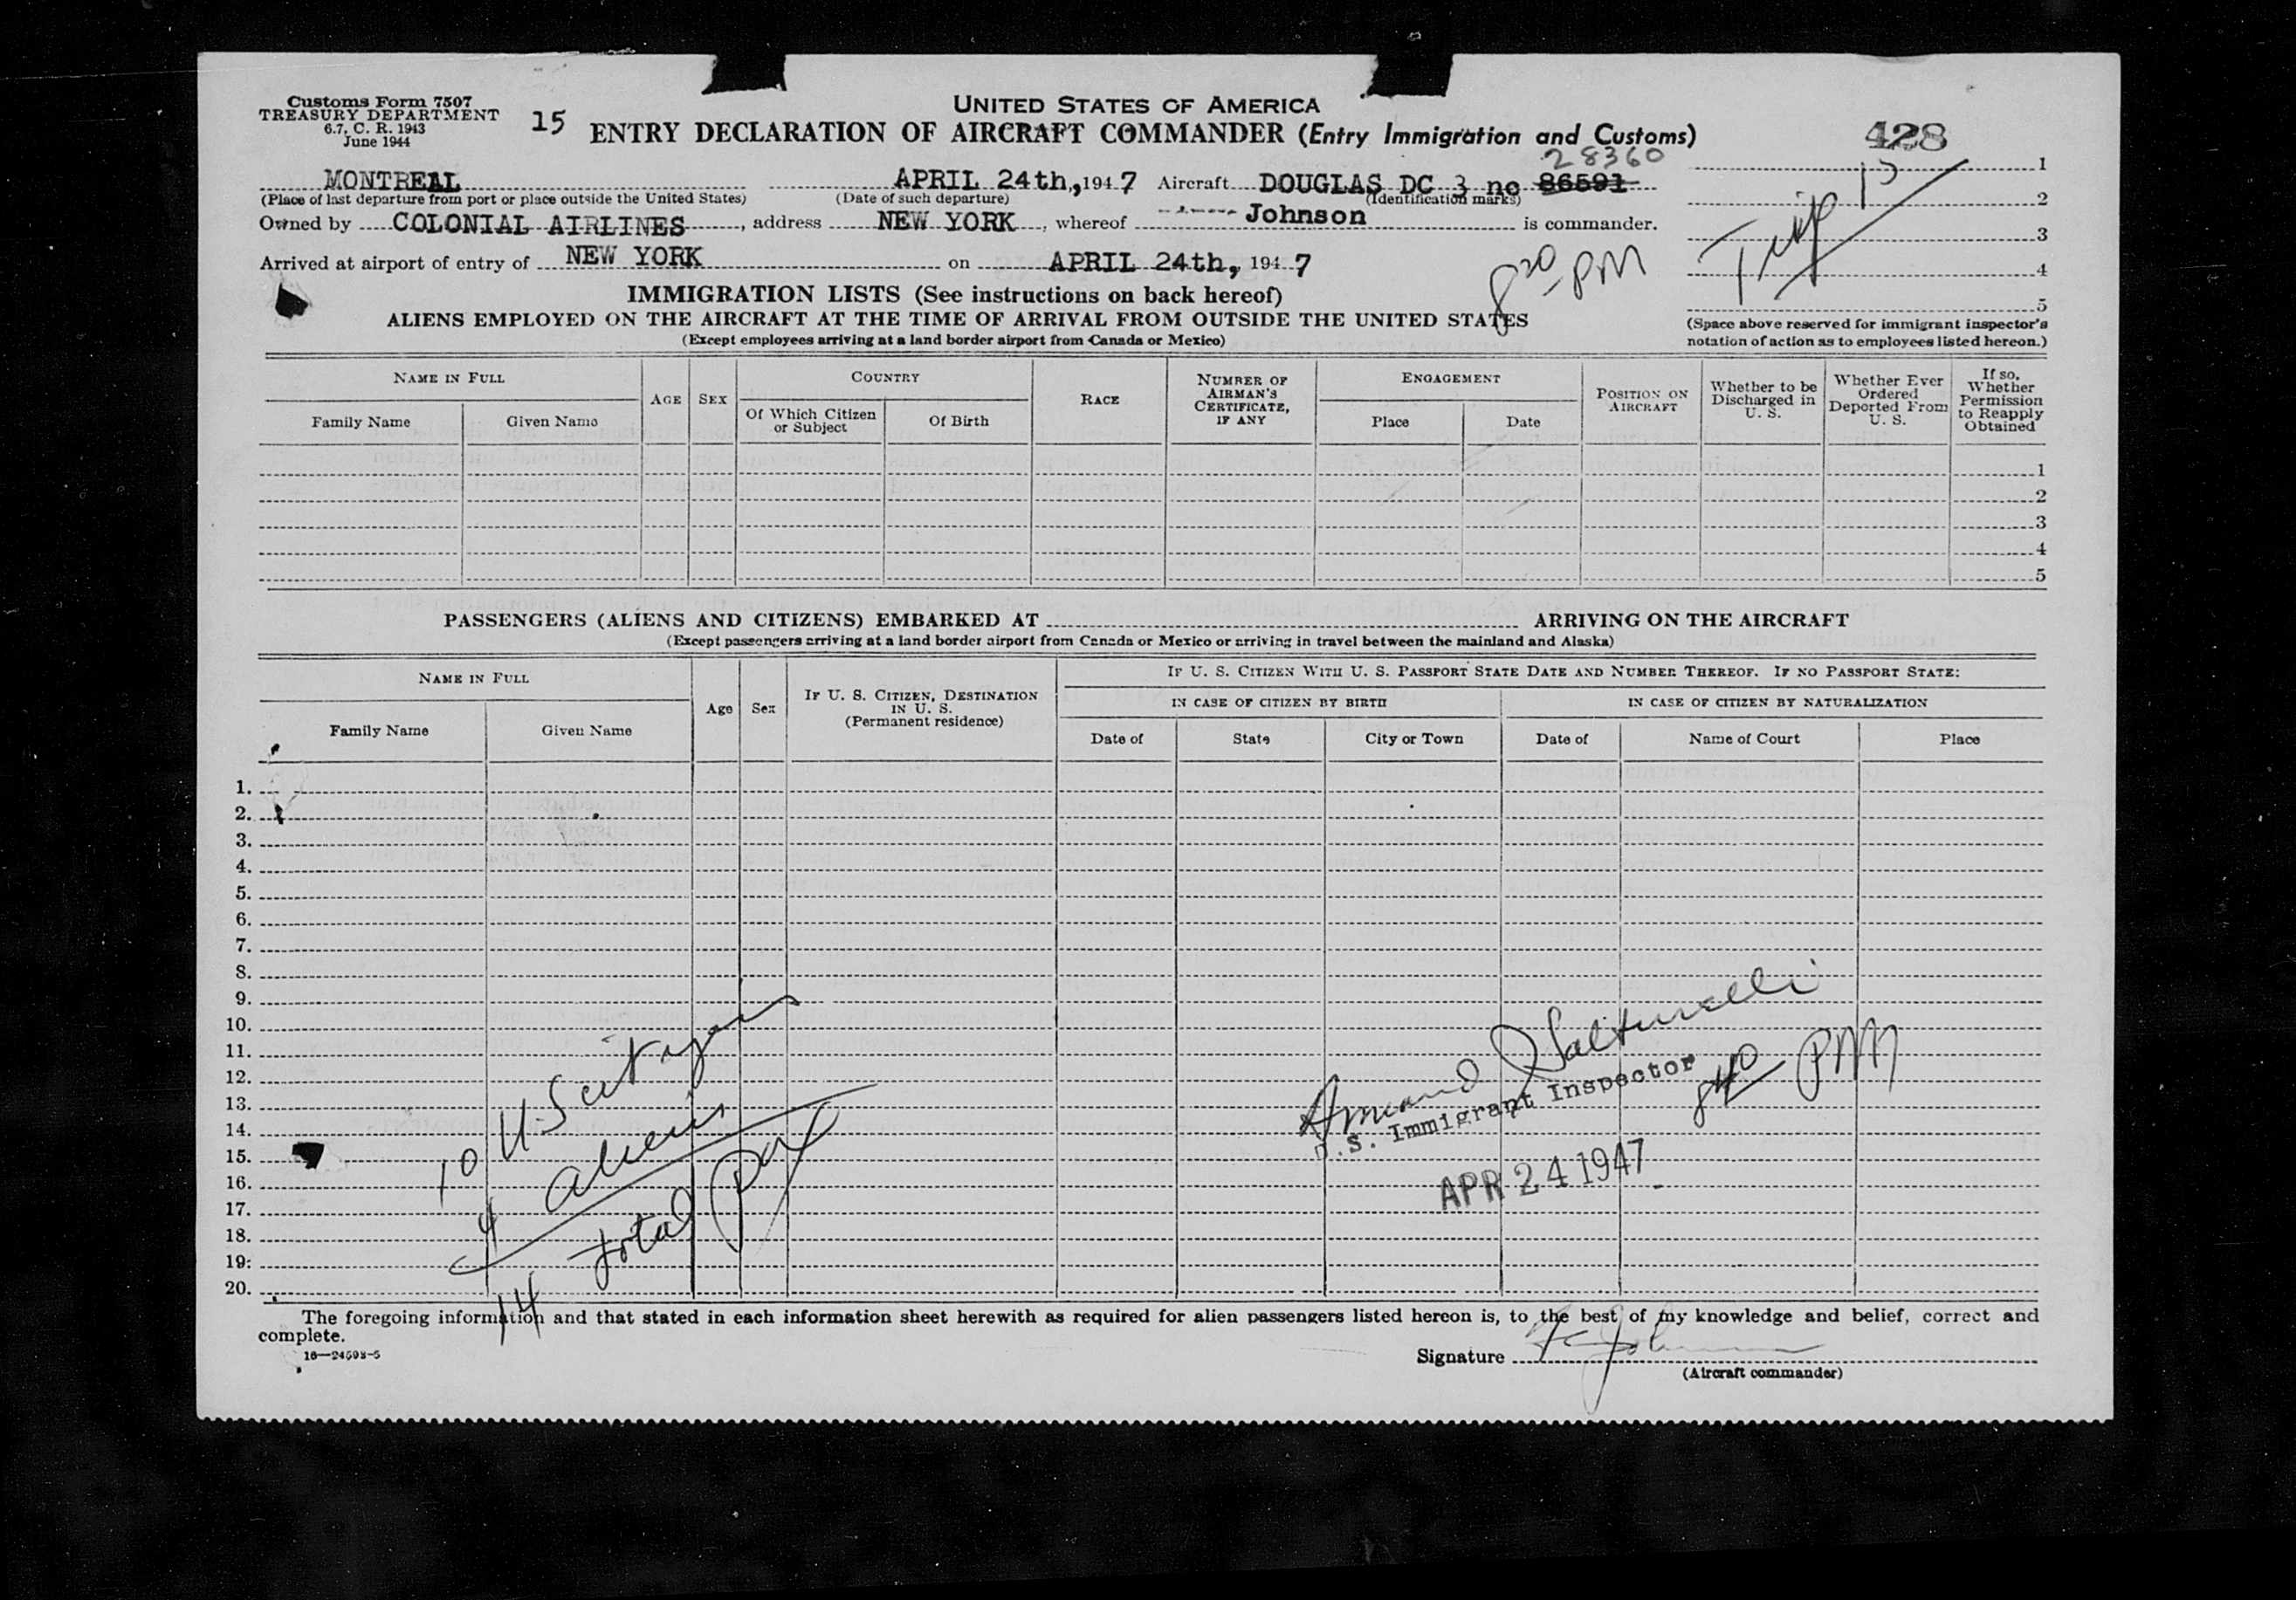 Customs Form 7507
TREASURY DEPARTMENT
6.7, C. R. 1943
June 1944
15
UNITED STATES OF AMERICA
ENTRY DECLARATION OF AIRCRAFT COMMANDER (Entry Immigration and Customs)
428
28360
MONTREAL APRIL 24th,, 1947 Aircraft DOUGLAS DC 3 no 86591
(Place of last departure from port or place outside the United States) (Date of such departure) (Identification marks)
Owned by COLONIAL AIRLINES, address NEW YORK, whereof Johnson is commander.
Arrived at airport of entry of NEW YORK on APRIL 24th, 1947
8 20 PM
Trip 15
1
2
3
4
5
(Space above reserved for immigrant inspector's
notation of action as to employees listed hereon.)
IMMIGRATION LISTS (See instructions on back hereof)
ALIENS EMPLOYED ON THE AIRCRAFT AT THE TIME OF ARRIVAL FROM OUTSIDE THE UNITED STATES
(Except employees arriving at a land border airport from Canada or Mexico)
NAME IN FULL
Family Name Given Name
AGE
SEX
COUNTRY
Of Which Citizen or Subject
Of Birth
RACE
NUMBER OF AIRMAN'S CERTIFICATE, IF ANY
ENGAGEMENT
Place Date
POSITION ON AIRCRAFT
Whether to be Discharged in U. S.
Whether Ever Ordered Deported From U. S.
If so, Whether Permission to Reapply Obtained
1
2
3
4
5
PASSENGERS (ALIENS AND CITIZENS) EMBARKED AT ARRIVING ON THE AIRCRAFT
(Except passengers arriving at a land border airport from Canada or Mexico or arriving in travel between the mainland and Alaska)
NAME IN FULL
Family Name Given Name
Age
Sex
IF U. S. CITIZEN, DESTINATION IN U. S.
(Permanent residence)
IF U. S. CITIZEN WITH U. S. PASSPORT STATE DATE AND NUMBER THEREOF. IF NO PASSPORT STATE:
IN CASE OF CITIZEN BY BIRTH IN CASE OF CITIZEN BY NATURALIZATION
Date of State City or Town Date of Name of Court Place
1.
2.
3.
4.
5.
6.
7.
8.
9.
10.
11.
12.
13.
14.
15.
16.
17.
18.
19.
20.
10 U.S citizens
4 aliens
14 total Pax
Armand J Salturelli
U.S. Immigrant Inspector
8 40 PM
APR 24 1947
The foregoing information and that stated in each information sheet herewith as required for alien passengers listed hereon is, to the best of my knowledge and belief, correct and
complete.
16—24598-5
Signature
(Aircraft commander)